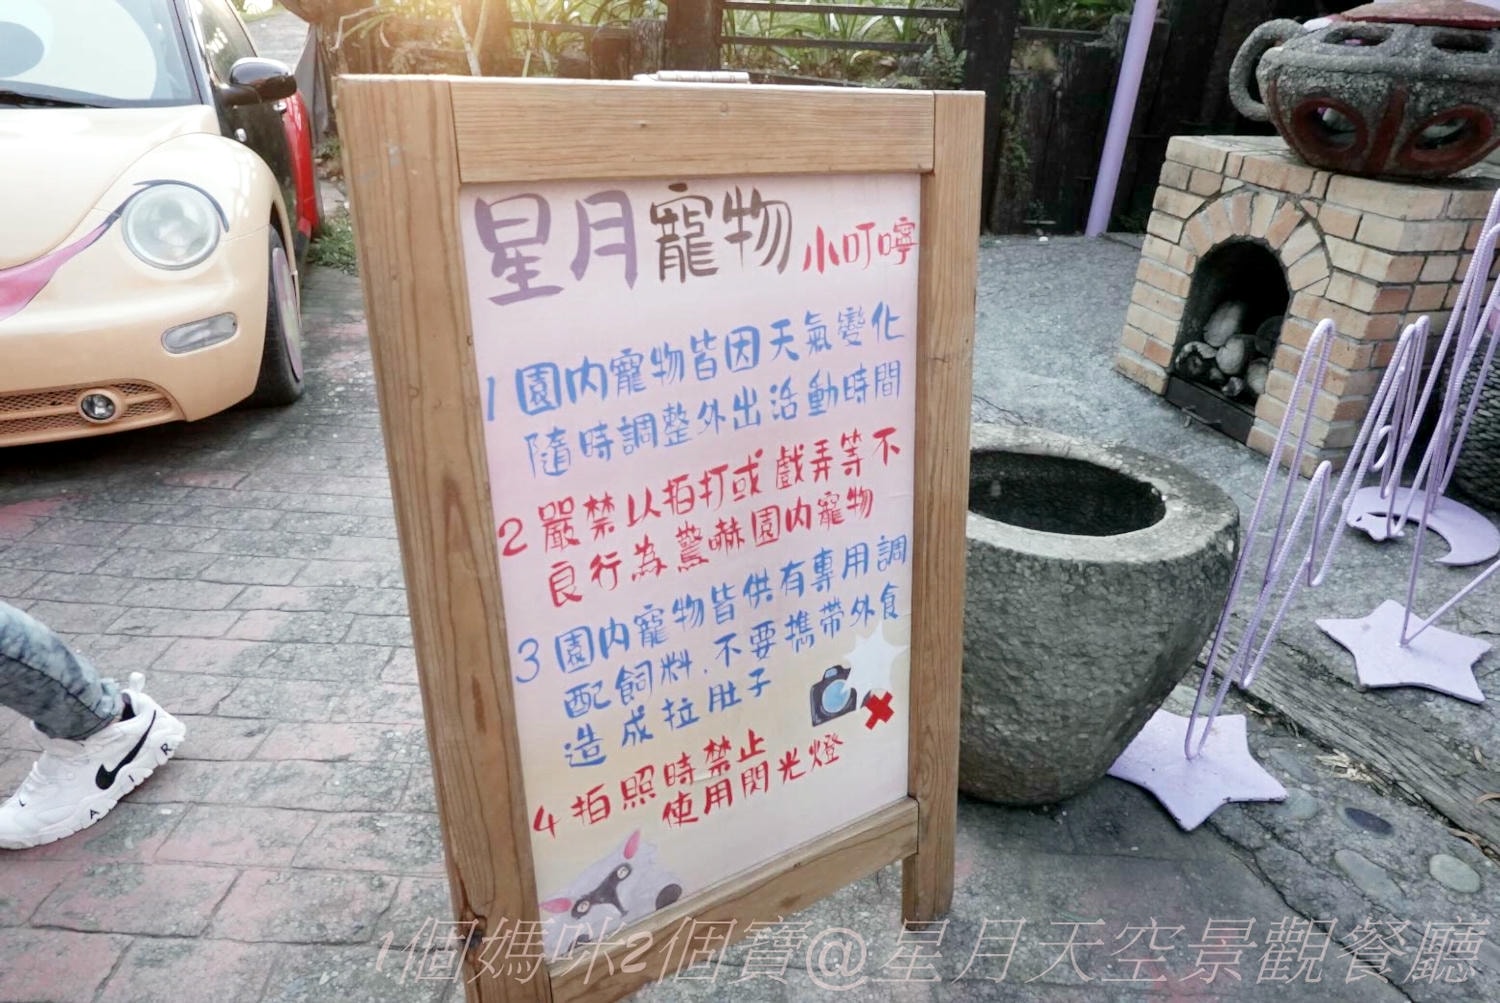 星月寵物 小叮嚀
1 園內寵物皆因天氣變化
隨時調整外出活動時間
2 嚴禁以拍打或戲弄等不
良行為驚嚇園內寵物
3 園內寵物皆供有專用調
配飼料.不要攜帶外食
造成拉肚子
4 拍照時禁止
使用閃光燈
AIR
1個媽咪2個寶@星月天空景觀餐廳